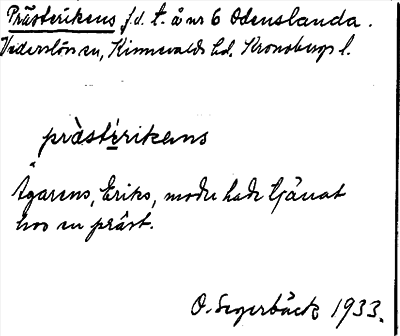 Prästerikens f.d. t. å nr 6 Odenslanda.
Vederslövs sn, Kinnevalds hd. Kronobergs l.
prästerikens
Ägarens, Eriks, moder hade tjänat
hos en präst.
O. Segerbäck 1933.